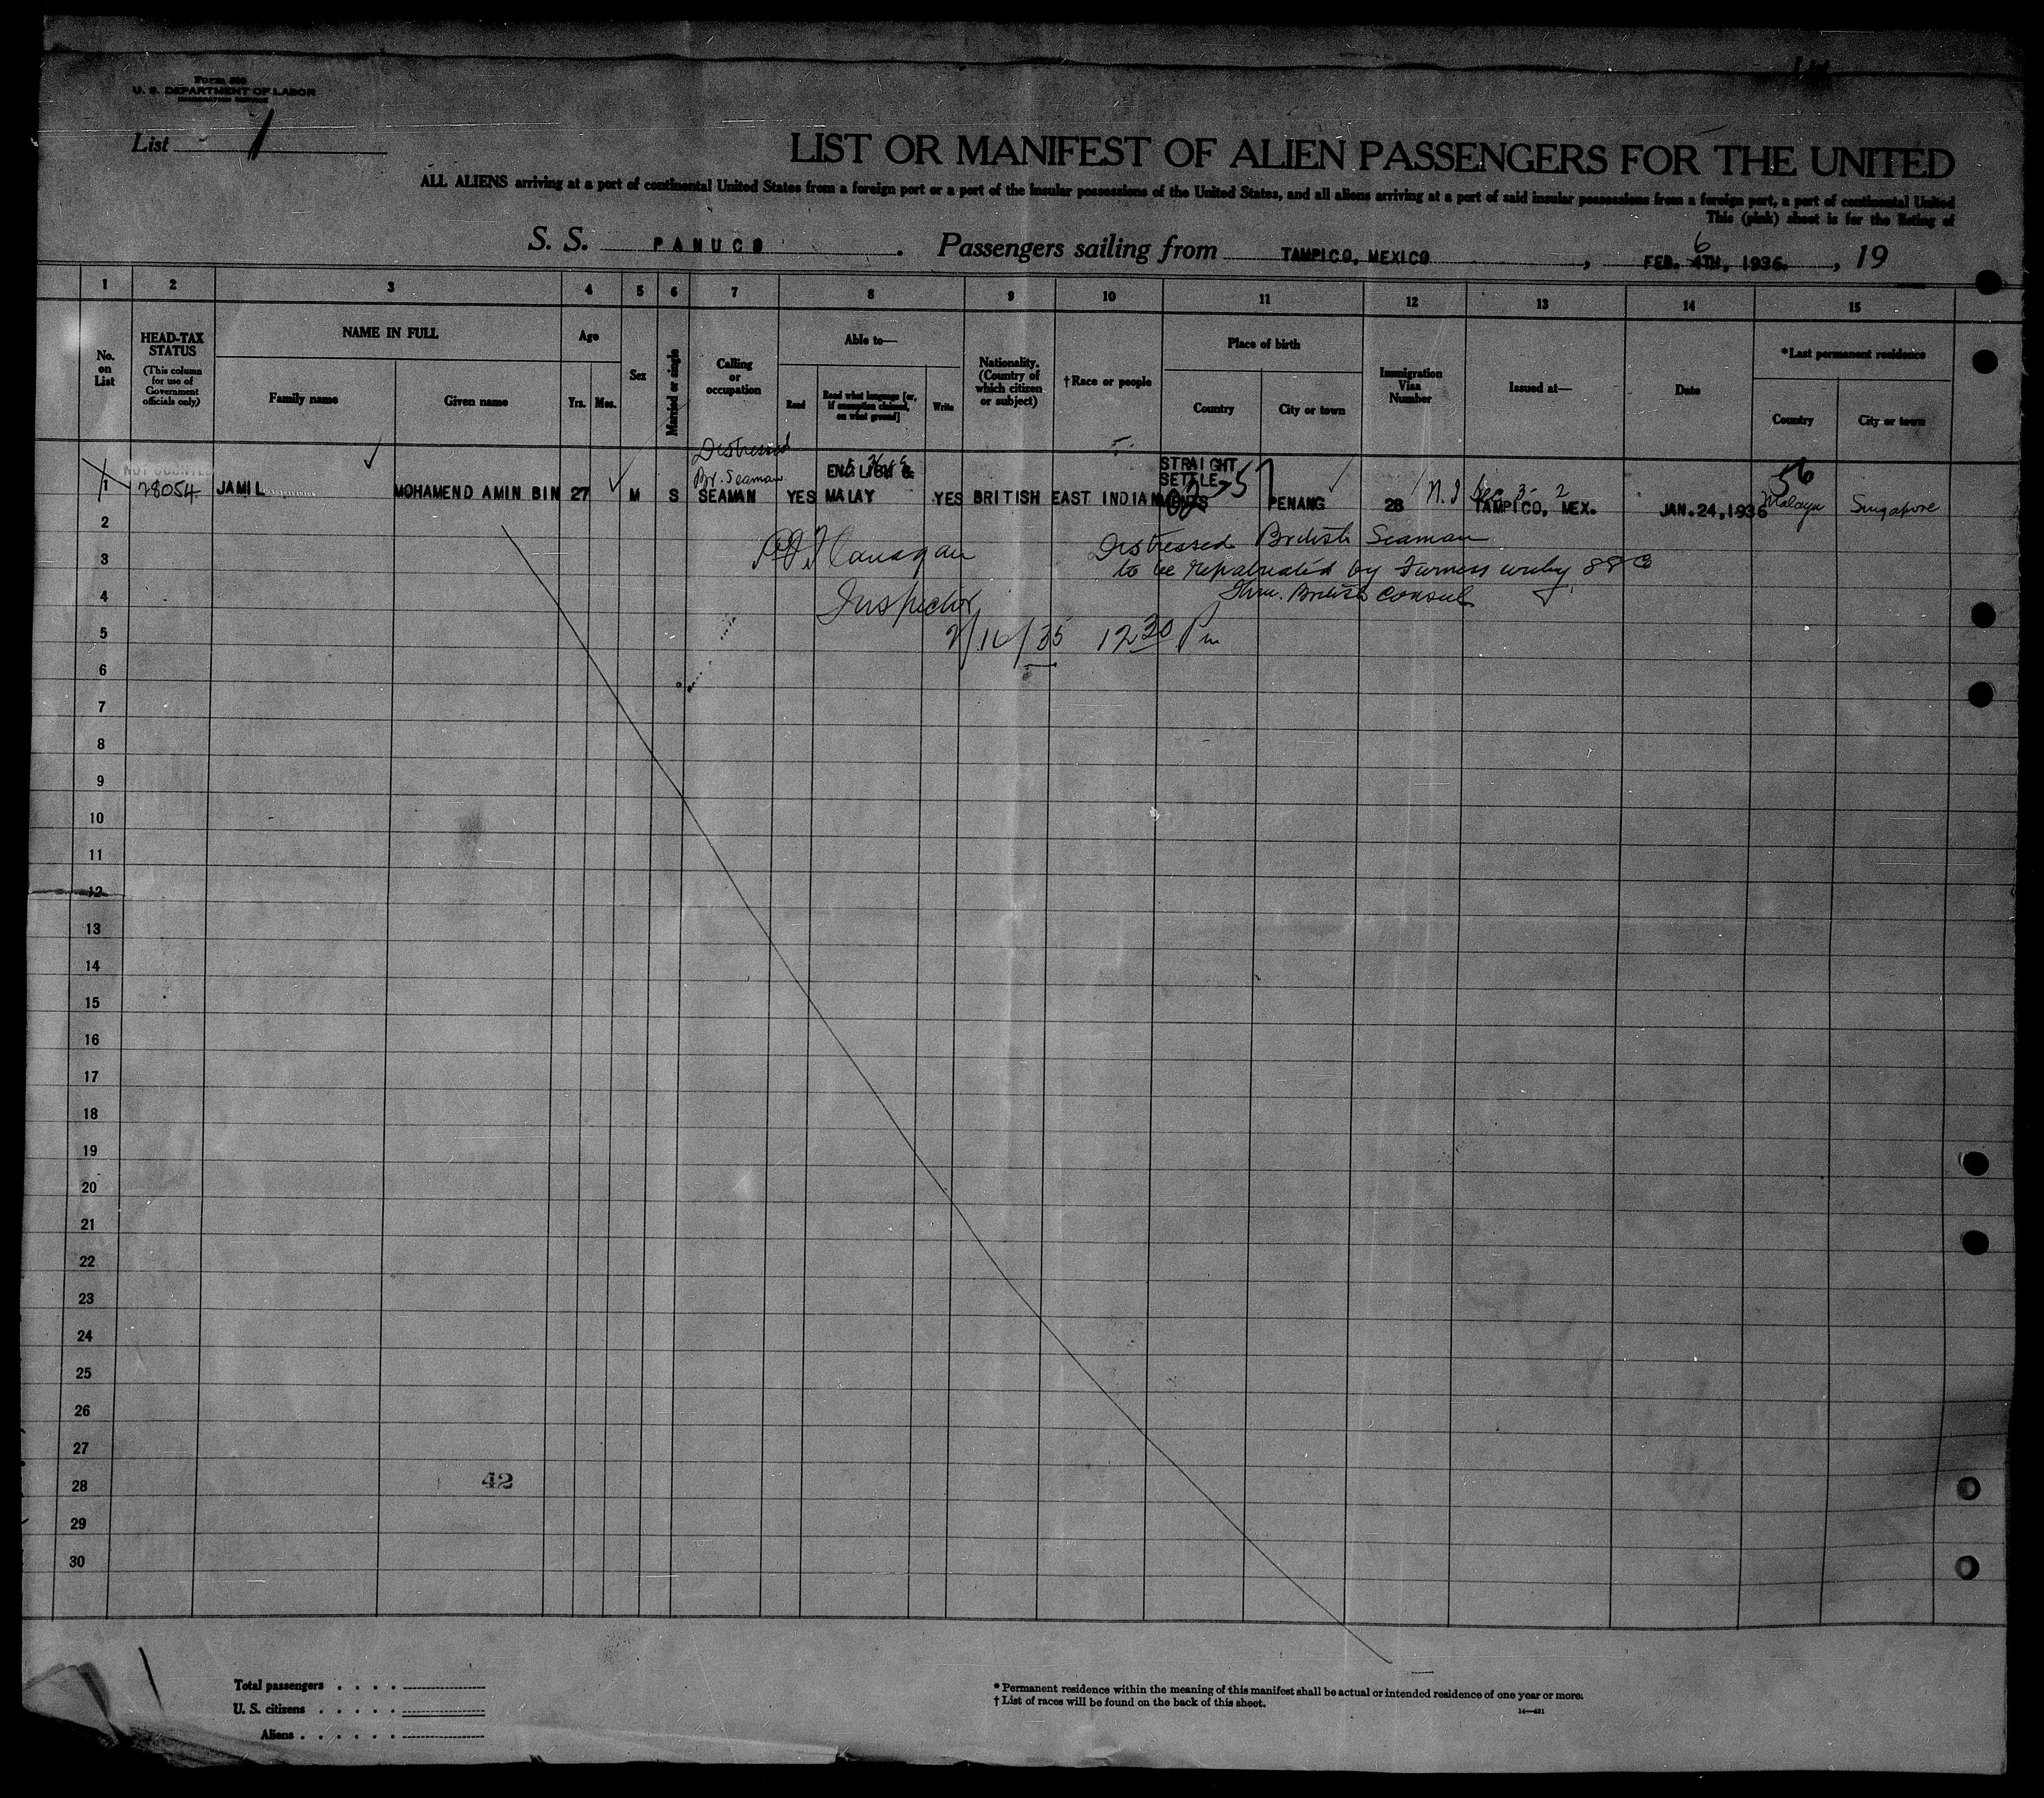 Form 500
U. S. DEPARTMENT OF LABOR
IMMIGRATION SERVICE
List 1
LIST OR MANIFEST OF ALIEN PASSENGERS FOR THE UNITED
ALL ALIENS arriving at a port of continental United States from a foreign port or a port of the insular possessions of the United States, and all aliens arriving at a port of said insular possessions from a foreign port, a port of continental United
This (pink) sheet is for the listing of
S. S. PANUCO . Passengers sailing from TAMPICO, MEXICO , FEB. 4TH, 1936. , 19
6
1 2 3 4 5 6 7 8 9 10 11 12 13 14 15
No. on List
HEAD-TAX STATUS
(This column for use of Government officials only)
NAME IN FULL
Family name
Given name
Age
Yrs.
Mos.
Sex
Married or single
Calling or occupation
Able to—
Read
Read what language [or, if exemption claimed, on what ground]
Write
Nationality. (Country of which citizen or subject)
†Race or people
Place of birth
Country
City or town
Immigration Visa Number
Issued at—
Date
*Last permanent residence
Country
City or town
Distressed
Br. Seaman
NOT COUNTED
1 28054 JAMIL MOHAMEND AMIN BIN 27 M S SEAMAN YES ENGLISH & MALAY YES BRITISH EAST INDIAN STRAIGHT SETTLEMENTS PENANG 28 TAMPICO, MEX. JAN.24,1936 Malaya Singapore
N. I Sec 3- 2
56
2
3
4
5
6
7
8
9
10
11
12
13
14
15
16
17
18
19
20
21
22
23
24
25
26
27
28
29
30
Flanagan
Inspector
2/16/35 12 30 Pm
Distressed British Seaman
to be repatriated by Furness withy SS Co
Thru. British Consul
42
Total passengers
U. S. citizens
Aliens
* Permanent residence within the meaning of this manifest shall be actual or intended residence of one year or more.
† List of races will be found on the back of this sheet.
14—431